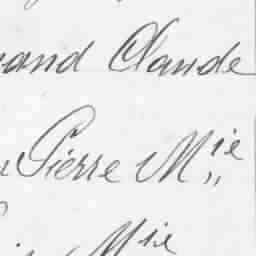 and Claude
Pierre Mie
Mie